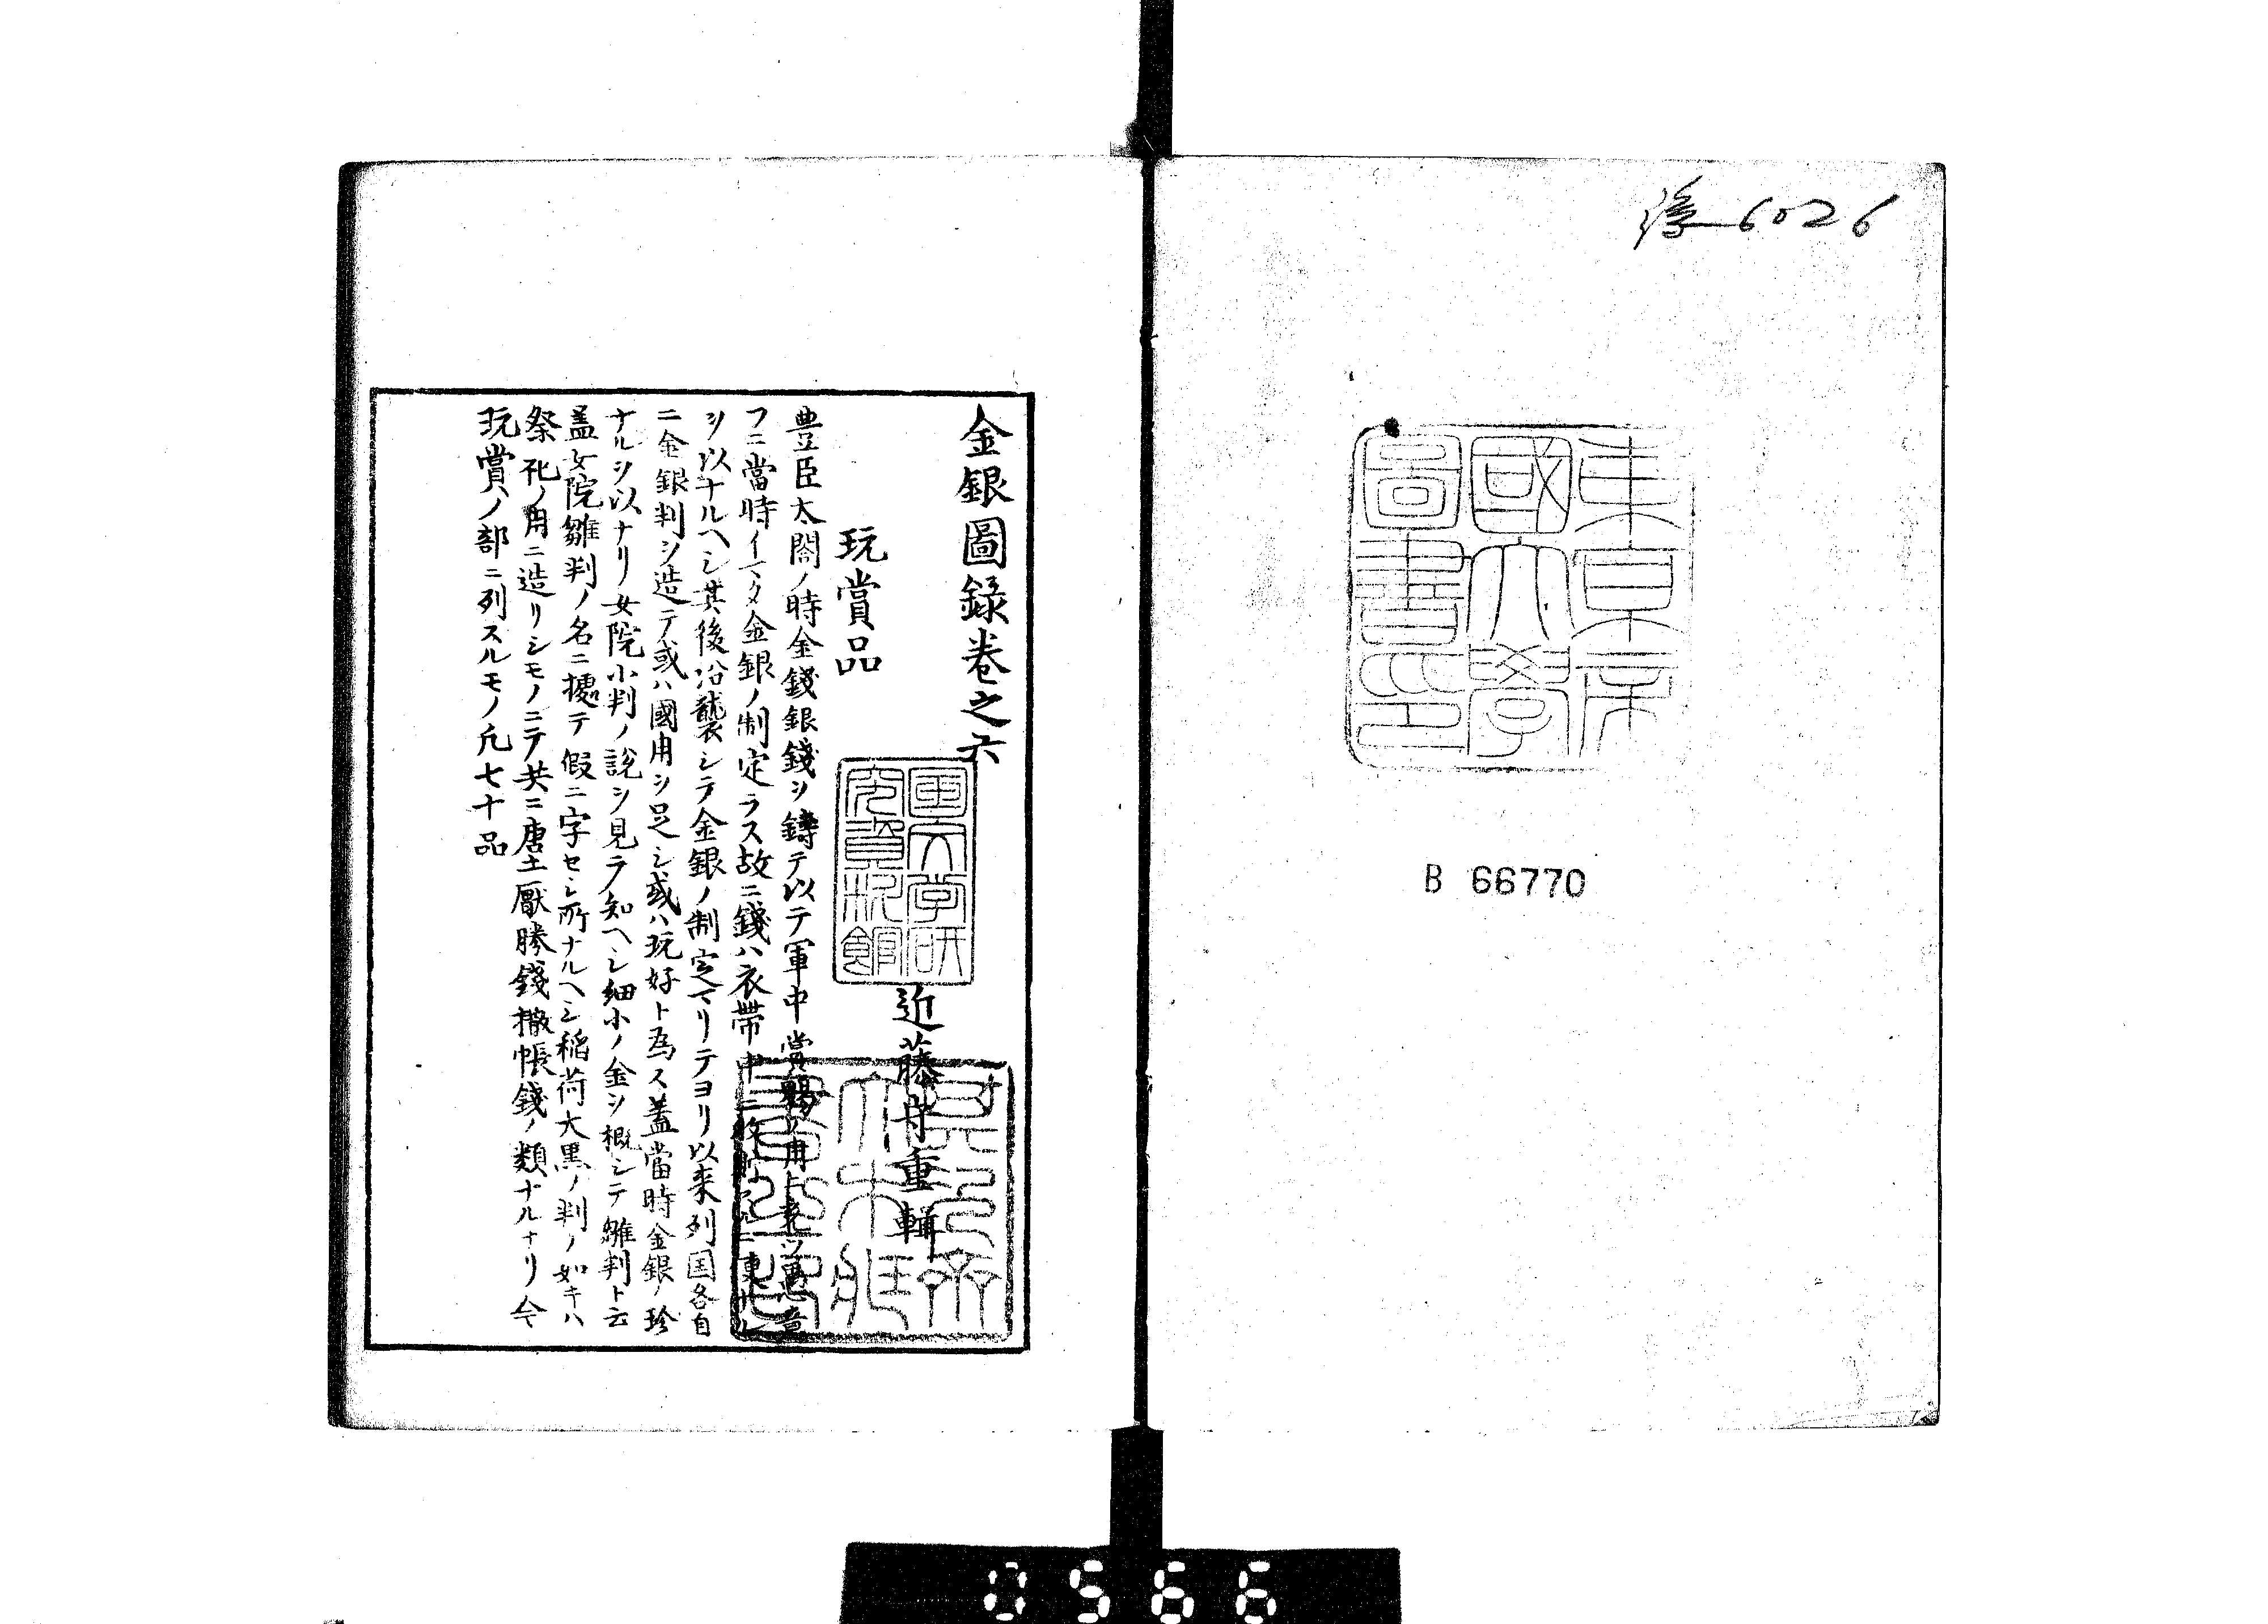 6026
東京帝
國大學
圖書印
B 66770
金銀圖錄卷之六
国文学研
究資料館
近藤守重輯
玩賞品
豊臣太閤ノ時金錢銀錢ヲ鑄テ以テ軍中賞賜ノ用ニ充ツ愚意
フニ當時イマタ金銀ノ制定ラス故ニ錢ハ衣帶中ニ收貯スルニ便ナル
ヲ以ナルヘシ其後沿襲シテ金銀ノ制定マリテヨリ以来列国各自
ニ金銀判ヲ造テ或ハ國用ヲ足シ或ハ玩好ト為ス蓋當時金銀ノ珍
ナルヲ以ナリ女院小判ノ説ヲ見テ知ヘシ細小ノ金ヲ概シテ雛判ト云
蓋女院雛判ノ名ニ據テ假ニ字セシ所ナルヘシ稲荷大黒ノ判ノ如キハ
祭祀ノ用ニ造リシモノニテ共ニ唐土厭勝錢撒帳錢ノ類ナルナリ今
玩賞ノ部ニ列スルモノ凡七十品
0566